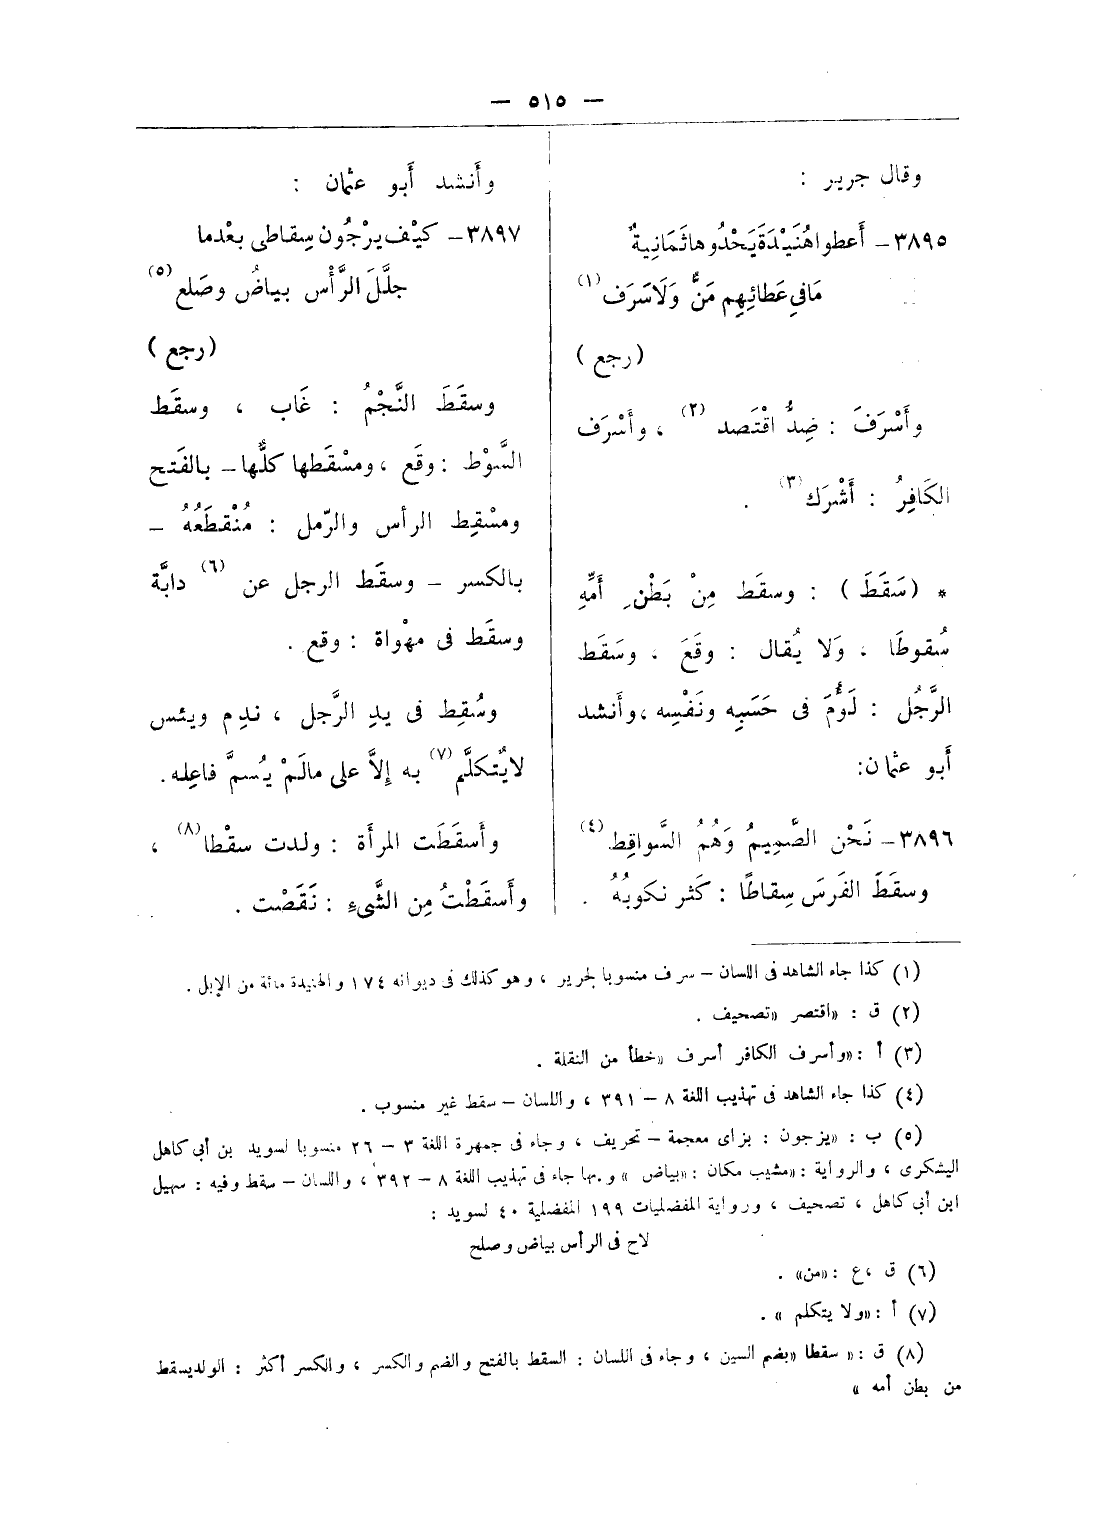 — ٥١٥ —
وقال جرير :
٣٨٩٥ – أَعطوا هُنَيْدَةَ يَحْدُوها ثَمَانِيةٌ
مَا فى عَطائِهِم مَنٌّ وَلَا سَرَف (١)
(رجع)
وأَسْرَفَ : ضِدُّ اقْتَصد (٢) ، وأَسْرَف
الكَافِرُ : أَشْرَك (٣) .
* (سَقَطَ) : وسقَط مِنْ بَطْنِ أُمِّهِ
سُقوطًا ، وَلا يُقال : وقَعَ ، وسَقَط
الرَّجُل : لَوُّمَ فى حَسَبِه ونَفْسِه ، وأَنشد
أَبو عثمان:
٣٨٩٦ – نَحْن الصَّمِيمُ وَهُمُ السَّواقِط (٤)
وسقَطَ الفَرَس سِقاطًا : كَثر نكوبُهُ .
وأَنشد أَبو عثمان :
٣٨٩٧ – كيْف يرْجُون سِقاطى بعْدما
جلَّلَ الرَّأْس بياضُ وصَلع (٥)
(رجع)
وسقَطَ النَّجْمُ : غَاب ، وسقَط
السَّوْط : وقَع ، ومسْقَطها كلُّها – بالفَتح
ومسْقِط الرأس والرّمل : مُنْقطَعُهُ –
بالكسر – وسقَط الرجل عن (٦) دابَّة
وسقَط فى مهْواة : وقع .
وسُقِط فى يدِ الرَّجل ، ندِم ويئس
لا يُتكلَّم (٧) به إِلاَّ على مالَمْ يُسمَّ فاعِله .
وأَسقَطَت المرأَة : ولدت سقْطا (٨) ،
وأَسقَطْتُ مِن الشَّىءِ : نَقَصْت .
(١) كذا جاء الشاهد فى اللسان – سرف منسوبا لجرير ، وهو كذلك فى ديوانه ١٧٤ والهنيدة مائة من الإبل .
(٢) ق : «اقتصر «تصحيف .
(٣) أ : «وأسرف الكافر أسرف «خطأ من النقلة .
(٤) كذا جاء الشاهد فى تهذيب اللغة ٨ – ٣٩١ ، واللسان – سقط غير منسوب .
(٥) ب : «يزجون : بزاى معجمة – تحريف ، وجاء فى جمهرة اللغة ٣ – ٢٦ منسوبا لسويد بن أبي كاهل
اليشكرى ، والرواية : «مشيب مكان : «بياض » وبها جاء فى تهذيب اللغة ٨ – ٣٩٢ ، واللسان – سقط وفيه : سهيل
ابن أبي كاهل ، تصحيف ، ورواية المفضليات ١٩٩ المفضلية ٤٠ لسويد :
لاح فى الرأس بياض وصلح
(٦) ق ،ع : «من» .
(٧) أ : «ولا يتكلم » .
(٨) ق : « سقطا «بضم السين ، وجاء فى اللسان : السقط بالفتح والضم والكسر ، والكسر أكثر : الولديسقط
من بطن أمه »